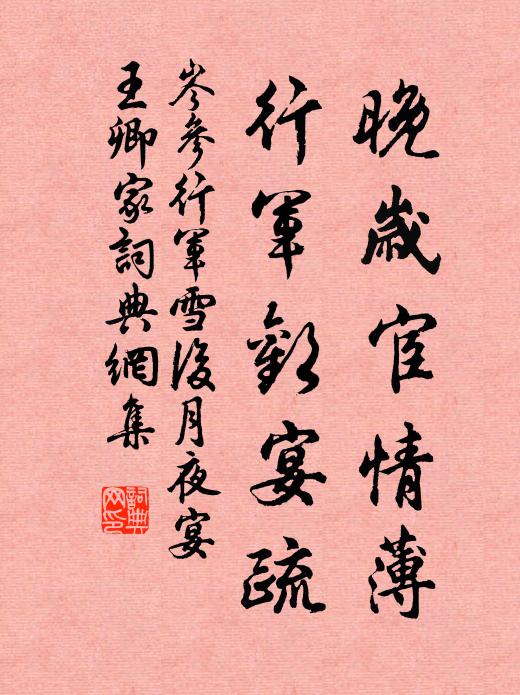 晚歲宦情薄
行軍歡宴疏
岑參行軍雪後月夜宴
王卿家詞典網集
詞典
网印